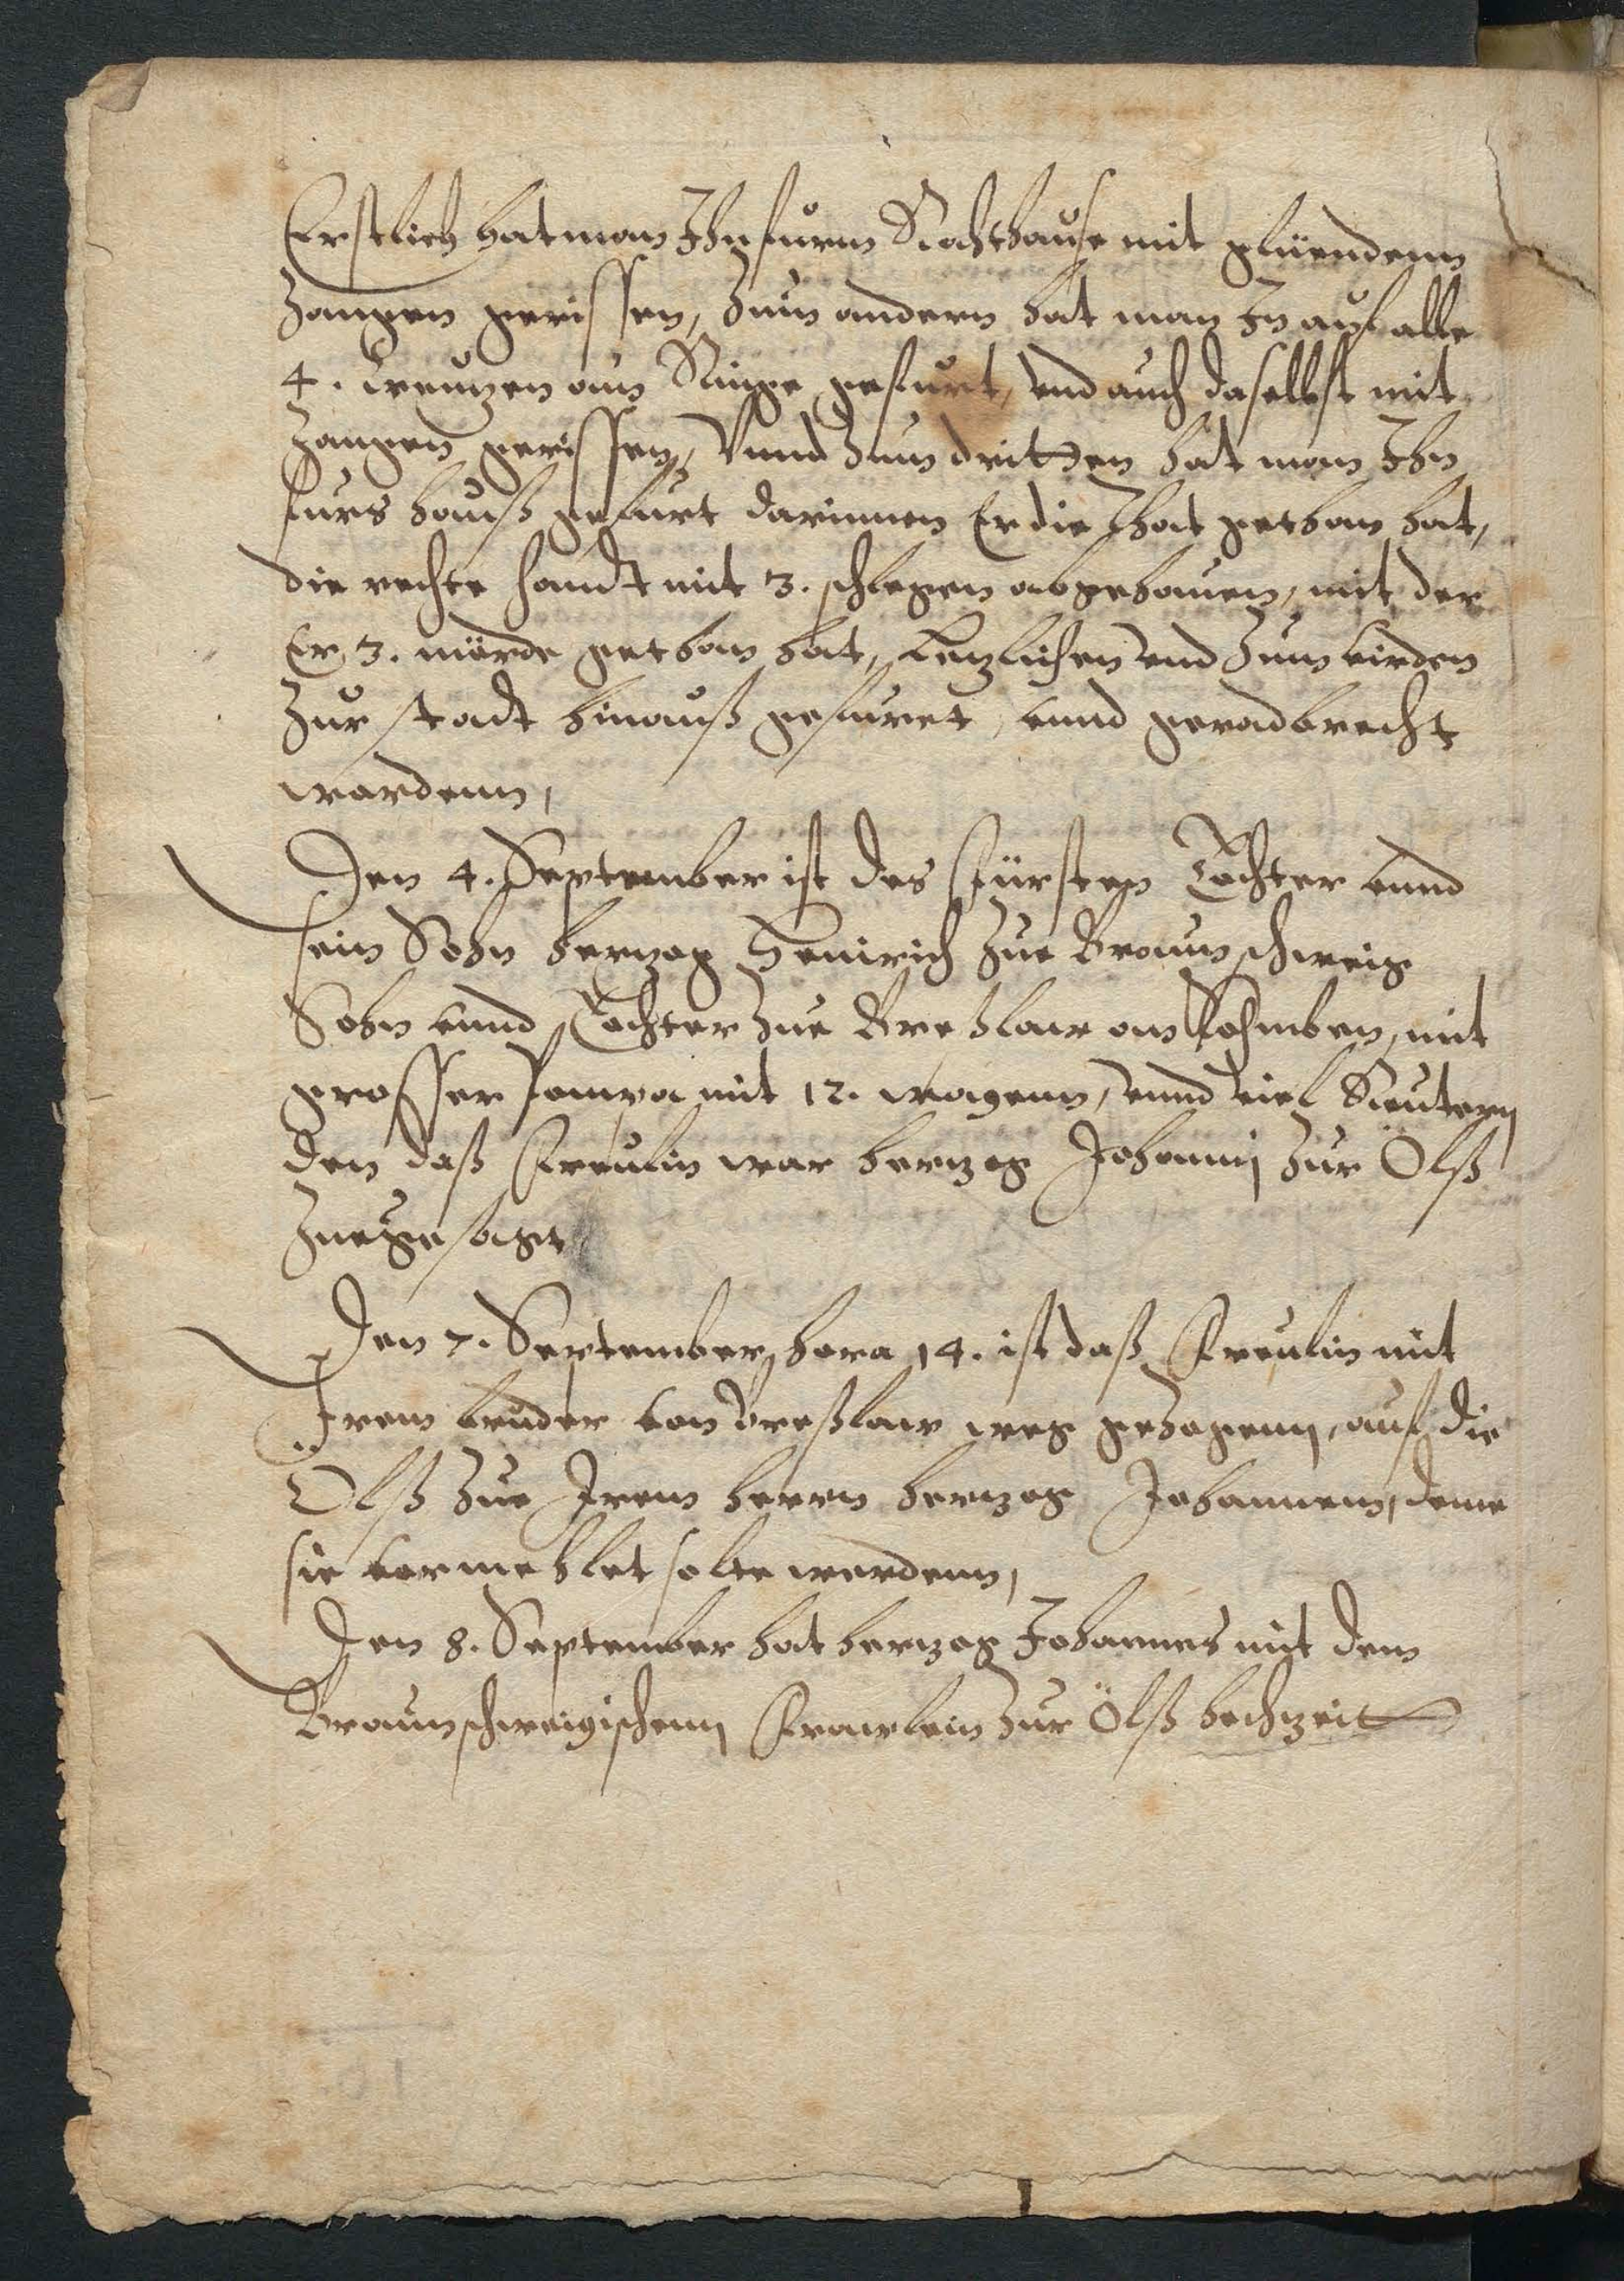 Erstlich hat man Ihn furm Rathhause mit gluendenn
Zangen gerissen, Zum andern hat man In auf alle
4. creuzen am Ringe gefurt, und auch daselbst mit
Zangen gerissen, Vnnd Zum dritten hat man Ihn
furs hauß gefurt darinnen Er die that gethan hat,
die rechte handt mit 3. schlegen abgehauen, mit der
Er 3. mörde gethan hat, Letzlichen und Zum virden
Zur stadt hinauß gefuret, vnnd geradbrecht
wordenn,
Den 4. September ist des Fürsten Tochter vnnd
sein Sohn herzog Heinrich Zue Braunschweig
Sohn vnnd Tochter Zue Breßlaw an komben, mit
grosser pompa mit 12. wagenn, vnnd viel Reutern
den daß Freulin war herzog Johannj Zur Ölß
Zuegesaget
Den 7. September, hora 14. ist daß Freulin mit
Irem bruder von Breßlaw weg gezogenn, auf die
Olß Zue Irem herrn herzog Johannem, deme
sie vermehlet solte werdenn,
Den 8. September hat herzog Johannes mit dem
Braunschweigischenn Frawlein Zur Ölß hochzeit